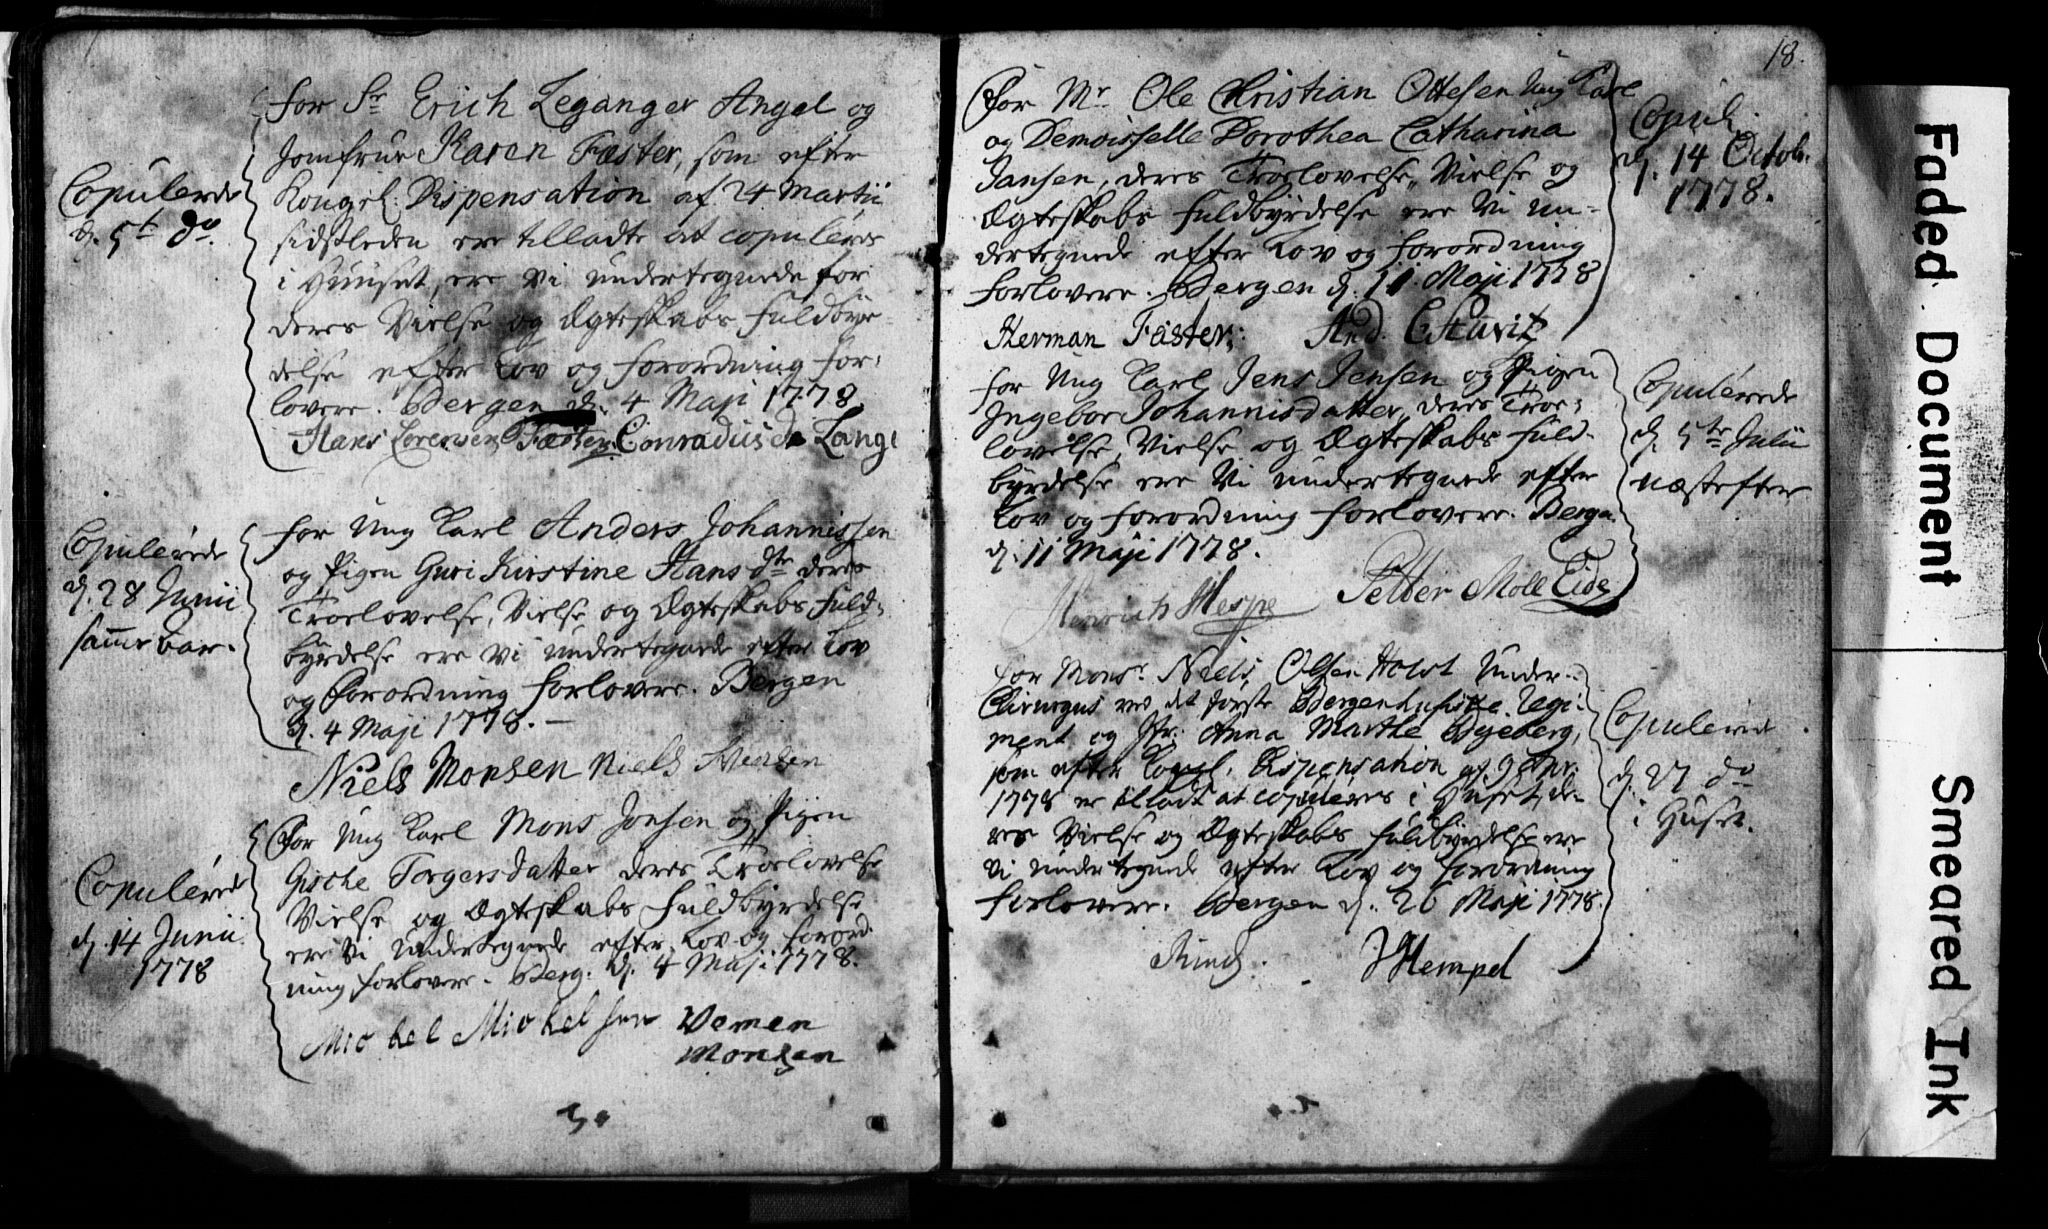 for Sr Erich Leganger Angel og
Jomfrue Karen Fæster, som efter
Kongel: Dispensation af 24 Martii
sidstleden ere tilladte at copuleres
i Huuset, ere vi undertegnede for
deres Vielse og Ægteskabs Fuldbyr-
delse efter Lov og Forordning for-
lovere. Bergen d. 4 Maji 1778.
Hans Lorensen Fæster Conradus de Lange
Copulerede
d. 5t do.
for Ung Karl Anders Johannissen
og Pigen Guri Kirstine Hans dtr deres
Troelovelse, Vielse og Ægteskabs Fuld-
byrdelse ere vi undertegnede efter Lov
og Forordning forlovere. Bergen
d. 4 Maji 1778. —
Niels Monsen Niels Iversen
Copulerede
d. 28 Junii
samme Aar.
For Ung Karl Mons Jonsen og Pigen
Gische Torgersdatter deres Troelovelse
Vielse og Ægteskabs Fuldbyrdelse
ere Vi undertegnede efter Lov og Forord-
ning forlovere. Berg: d. 4 Maji 1778.
Michel Michelsen Wemen
Monsen
Copulerede
d. 14 Junii
1778
18.
For Mr Ole Christian Ottesen Ung Karl
og Demoisselle Dorothea Catharina
Jansen, deres Troelovelse, Vielse og
Ægteskabs Fuldbyrdelse ere Vi un-
dertegnede efter Lov og Forordning
forlovere. Bergen d. 11 Maji 1778
Herman Fæster. And.
Copul.
d. 14 Octobr.
1778.
for Ung Karl Jens Jensen og Pigen
Ingebor Johannisdatter, deres Troe-
lovelse, Vielse og Ægteskabs Fuld-
byrdelse ere Vi undertegnede efter
Lov og Forordning forlovere. Bergen
d. 11 Maji 1778.
Henrich Wespe Petter Moll Eide
Copulerede
d. 5te Julii
næstefter
for Monsr. Niels Olsen Holst Under-
Chirurgus ved det første Bergenhusiske Regi-
ment og Jfr: Anna Marthe Dyeberg,
som efter Kongl. Dispensation af 9
1778 er tilladt at copuleres i Huset, de-
res Vielse og Ægteskabs Fuldbyrdelse ere
vi undertegnede efter Lov og Forordning
forlovere. Bergen d. 26 Maji 1778.
Hempel
Copulerede
d. 27 do
i Huset.
Faded Document
Smeared Ink